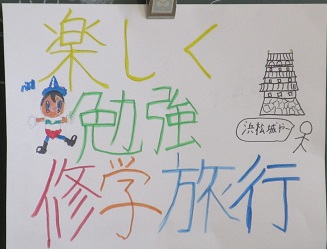 楽しく
勉強
浜松城だ〜
修学旅行